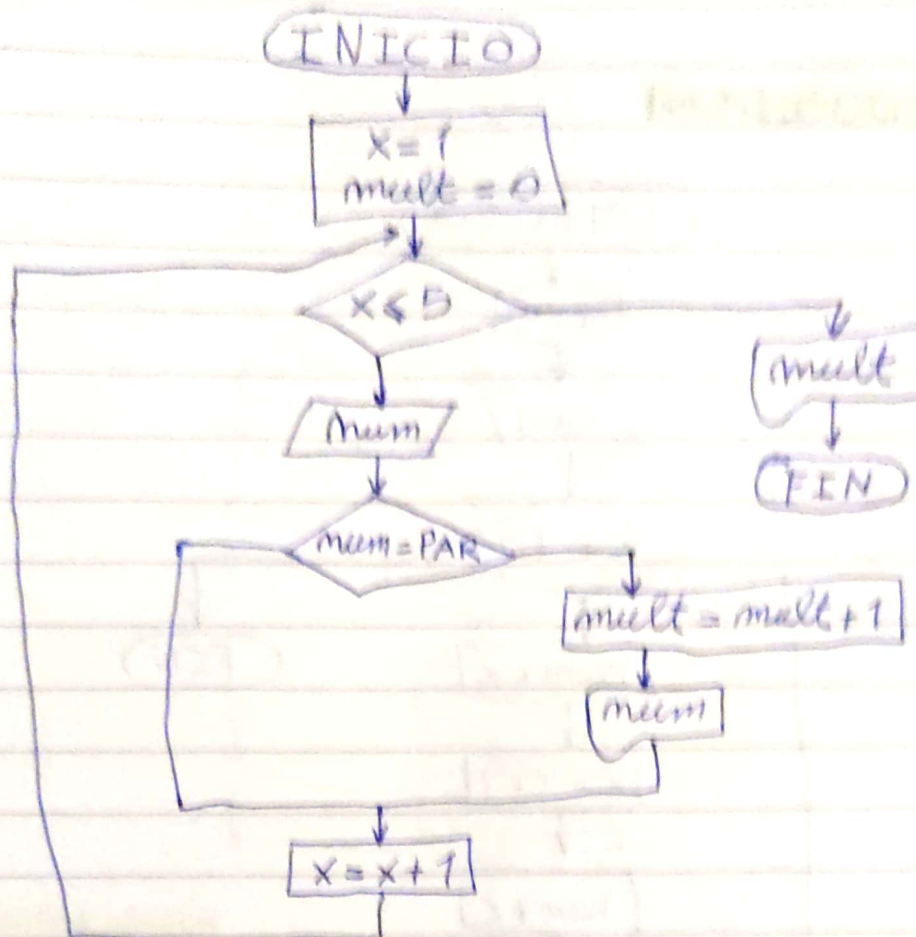 INICIO
x=1
mult = 0
x≤5
mult
num
FIN
num=PAR
mult = mult+1
num
x=x+1